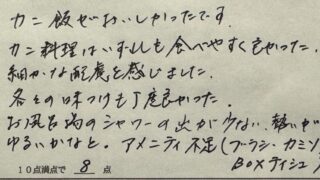 カニ飯がおいしかったです。
カニ料理はいずれも食べやすく良かった。
細かな配慮を感じました。
各々の味つけも丁度良かった。
お風呂場のシャワーの出が少ない、勢いが
ゆるいかなと。アメニティ不足(ブラシ・カミソ
BOXティシュ
10点満点で 8 点